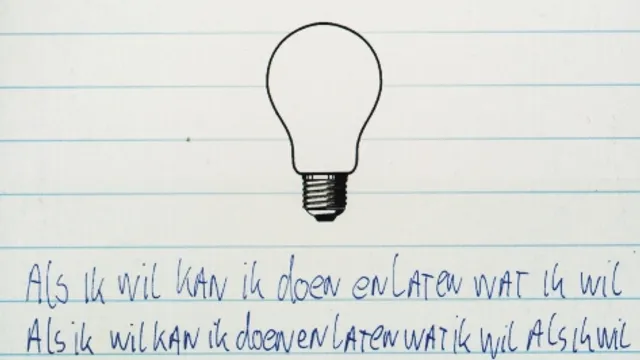 Als ik wil kan ik doen en laten wat ik wil
Als ik wil kan ik doen en laten wat ik wil Als ik wil